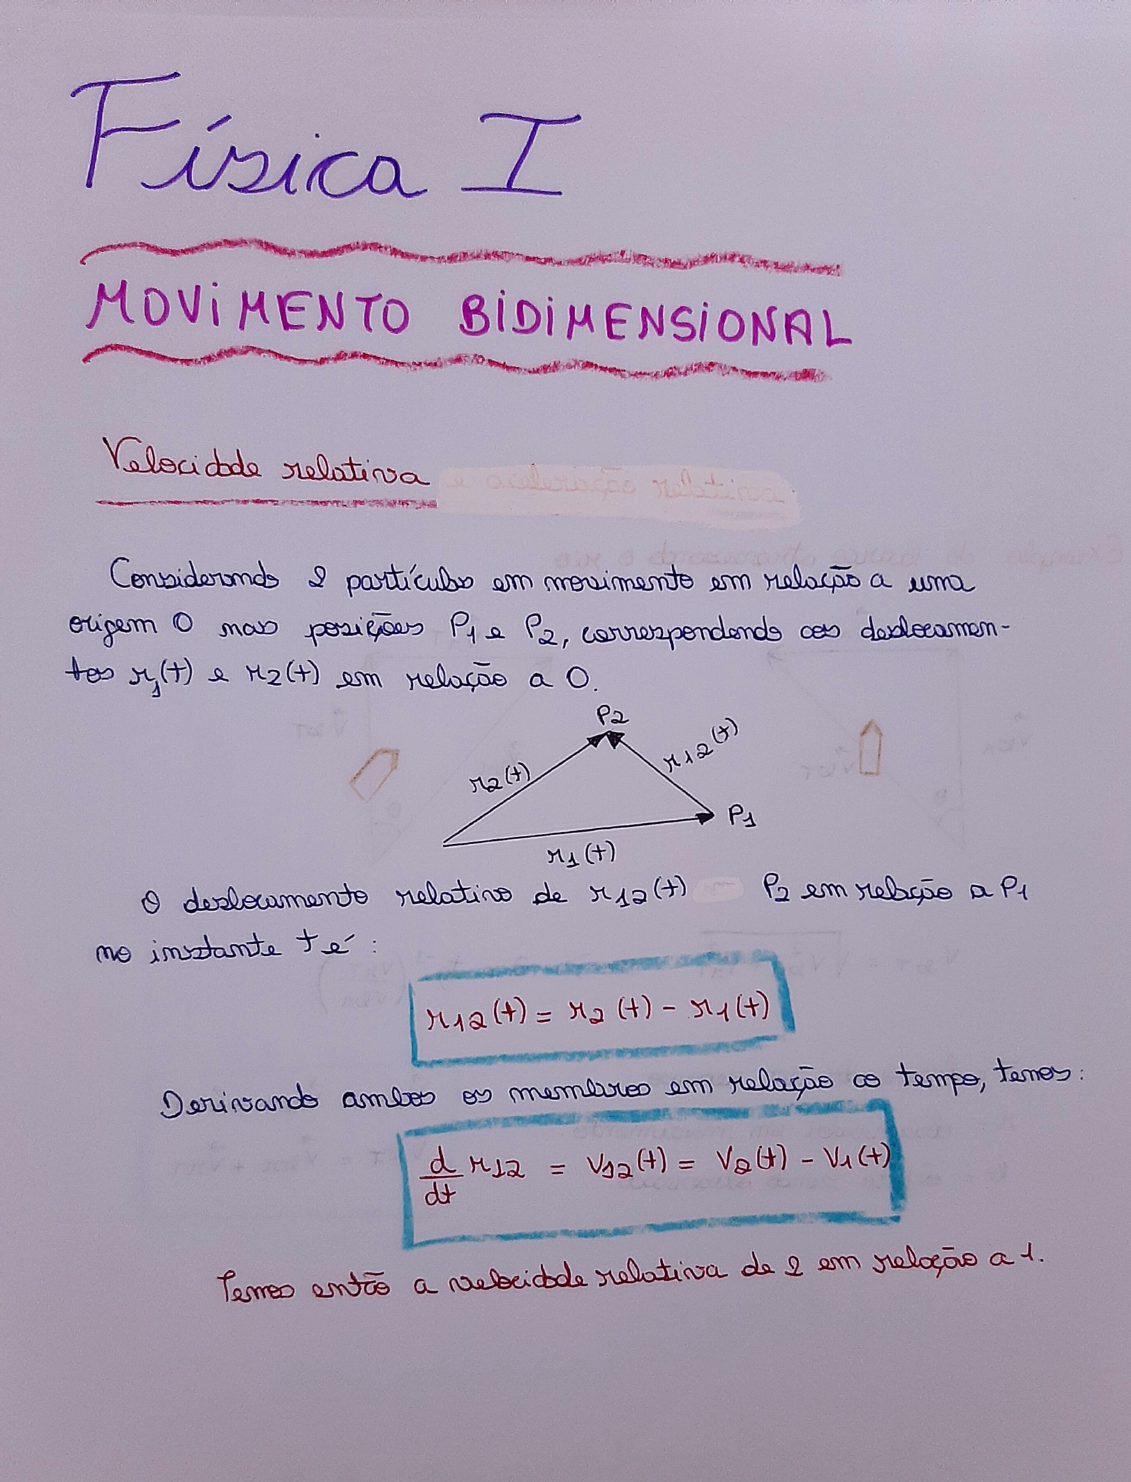 Física I
MOViMENTO BiDiMENSiONAL
Velocidade relativa
Considerando 2 partículas em movimento em relação a uma
origem O nas posições P1 e P2, correspondendo aos deslocamen-
tos r1(t) e r2(t) em relação a O.
P2
r2(t)
r12(t)
P1
r1(t)
O deslocamento relativo de r12(t) P2 em relação a P1
no instante t é:
r12(t) = r2(t) - r1(t)
Derivando ambos os membros em relação ao tempo, temos:
d/dt r12 = V12(t) = V2(t) - V1(t)
Temos então a velocidade relativa de 2 em relação a 1.